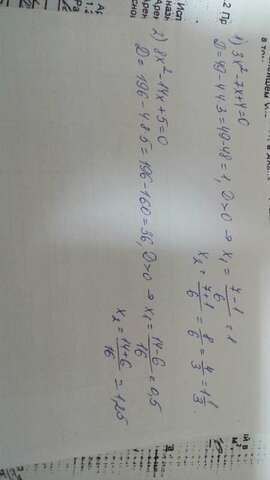 1) 3x²-7x+4=0
D= 49-4·4·3=49-48=1, D>0 → x₁ = (7-1)/6 = 1
x₂ = (7+1)/6 = 8/6 = 4/3 = 1 1/3
2) 8x²-14x+5=0
D= 196-4·8·5=196-160=36, D>0 → x₁ = (14-6)/16 = 0,5
x₂ = (14+6)/16 = 1,25